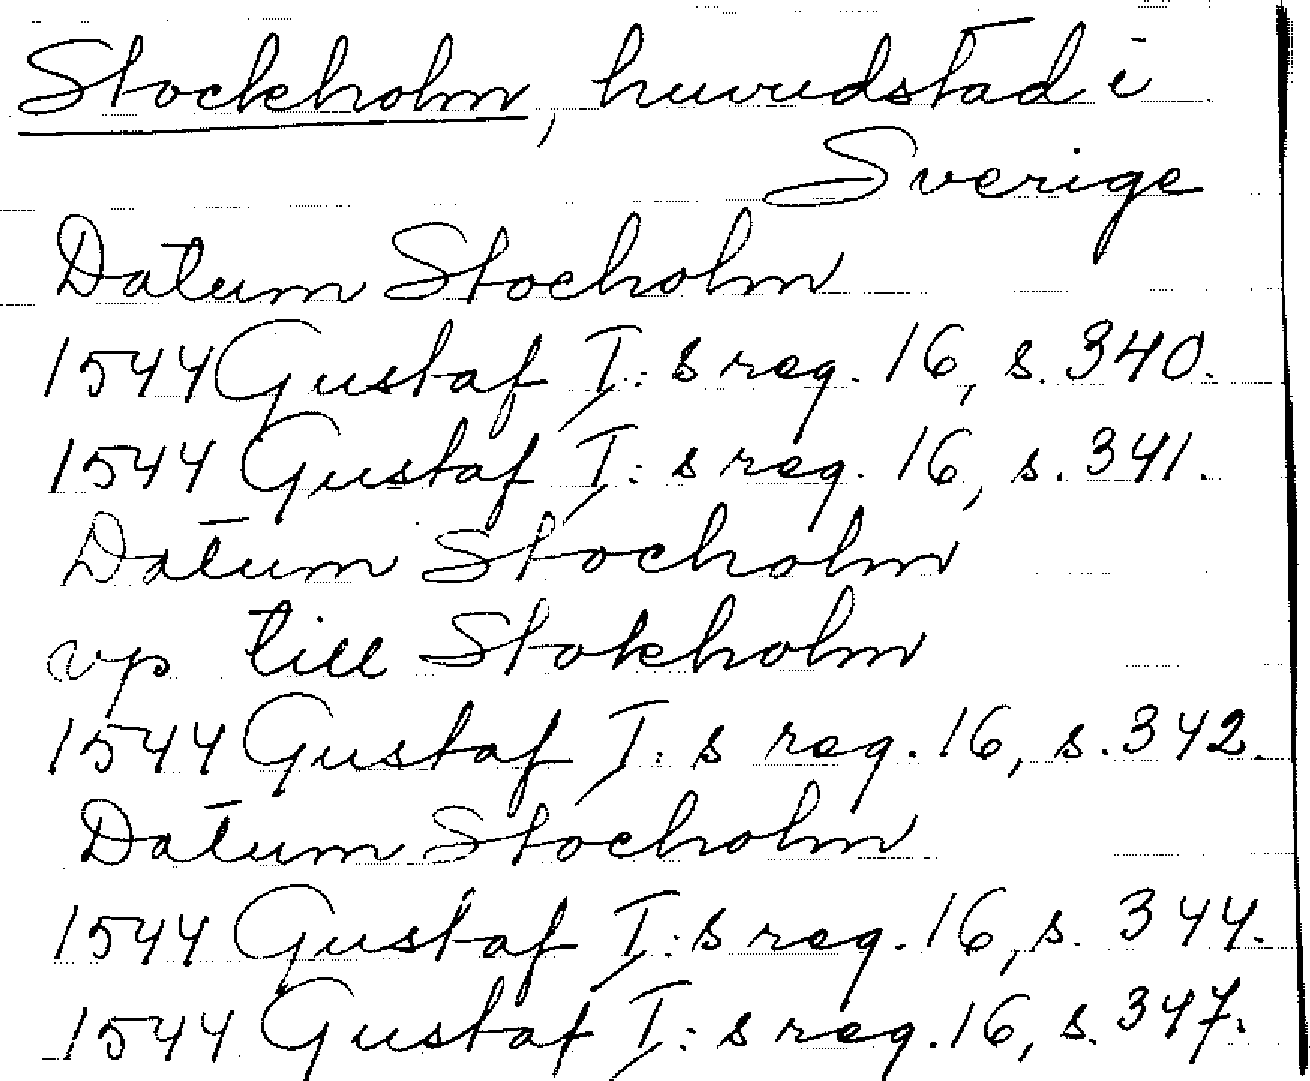 Stockholm, huvudstad i
Sverige
Datum Stocholm
1544 Gustaf I: s reg. 16, s. 340.
1544 Gustaf I: s reg. 16, s. 341.
Datum Stocholm
vp till Stokholm
1544 Gustaf I: s reg. 16, s. 342.
Datum Stocholm
1544 Gustaf I: s reg. 16, s. 344.
1544 Gustaf I: s reg. 16, s. 347.